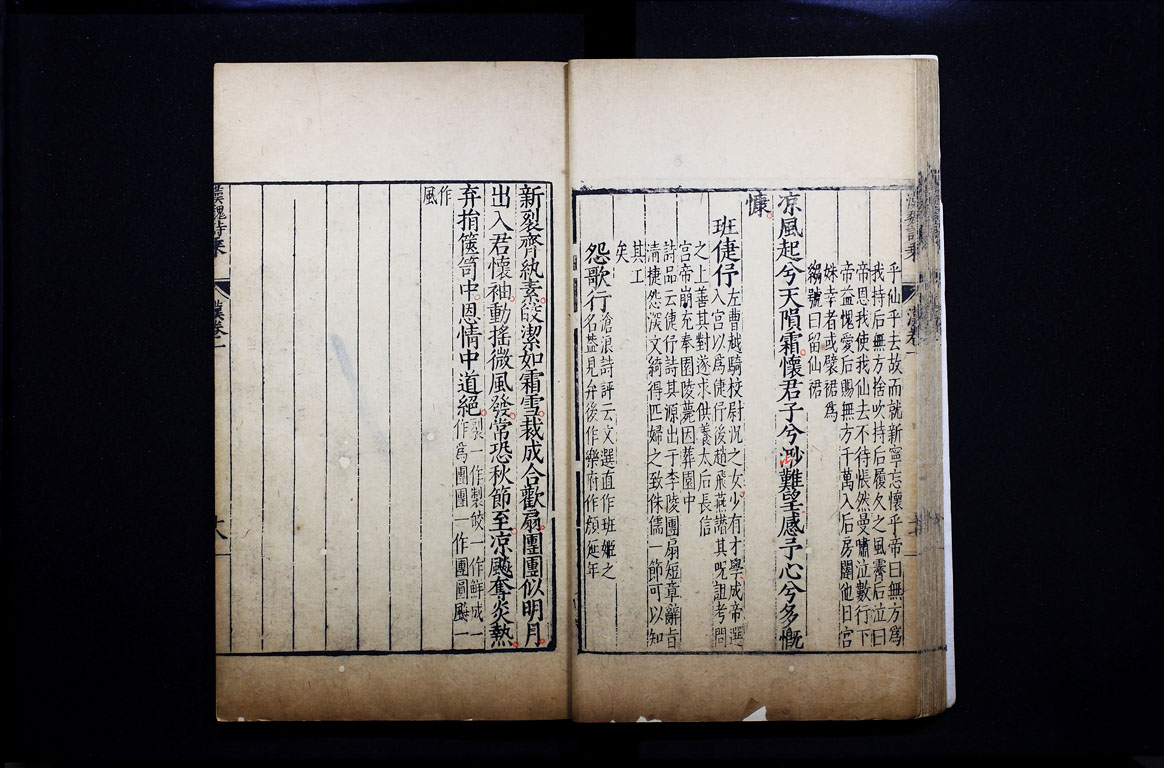 乎仙乎去故而就新寧忘懷乎帝曰無方爲
我持后無方捨吹持后履久之風霽后泣曰
帝恩我使我仙去不待悵然曼嘯泣數行下
帝益愧愛后賜無方千萬入后房闥他日宮
姝幸者或襞裙爲
縐號曰留仙裙
凉風起兮天隕霜懷君子兮渺難望感予心兮多慨
慷
班倢伃
左曹越騎校尉況之女少有才學成帝選
入宮以爲倢伃後趙飛燕譖其呪詛考問
之上善其對遂求供養太后長信
宮帝崩充奉園陵薨因葬園中
詩品云倢伃詩其源出于李陵團扇短章辭旨
清捷怨深文綺得匹婦之致侏儒一節可以知
其工
矣
怨歌行
滄浪詩評云文選直作班姬之
名葢見弁後作樂府作顔延年
新裂齊紈素皎潔如霜雪裁成合歡扇團團似明月
出入君懷袖動搖微風發常恐秋節至凉飈奪炎熱
弃捐篋笥中恩情中道絕
裂一作製皎一作鮮成一
作爲團團一作團圓飈一
作
風
漢魏詩乘
漢卷一
十八